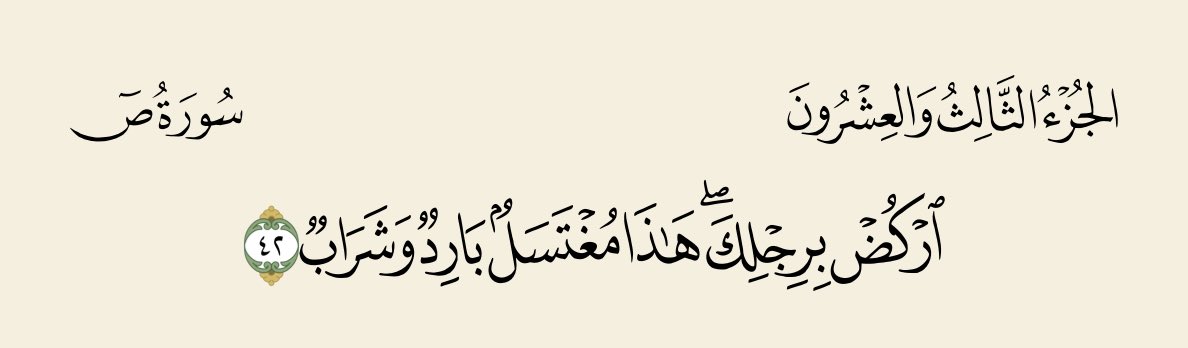 الجُزْءُ الثَّالِثُ وَالعِشْرُونَ سُورَةُ صٓ
ٱرْكُضْ بِرِجْلِكَۖ هَٰذَا مُغْتَسَلُۢ بَارِدٞ وَشَرَابٞ ٤٢